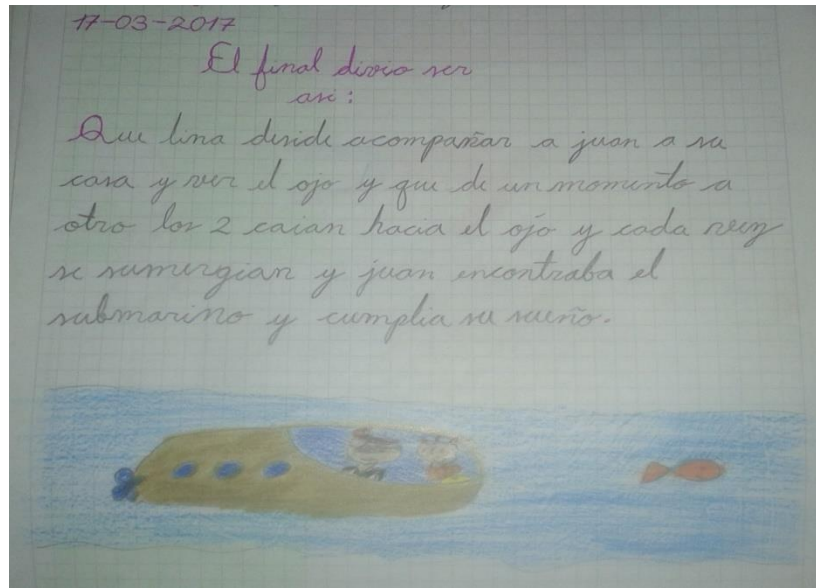 17-03-2017
El final divio ser
asi:
Que lina deside acompañar a juan a su
casa y ver el ojo y que de un momento a
otro los 2 caian hacia el ojo y cada vez
se sumergian y juan encontraba el
submarino y cumplia su sueño.